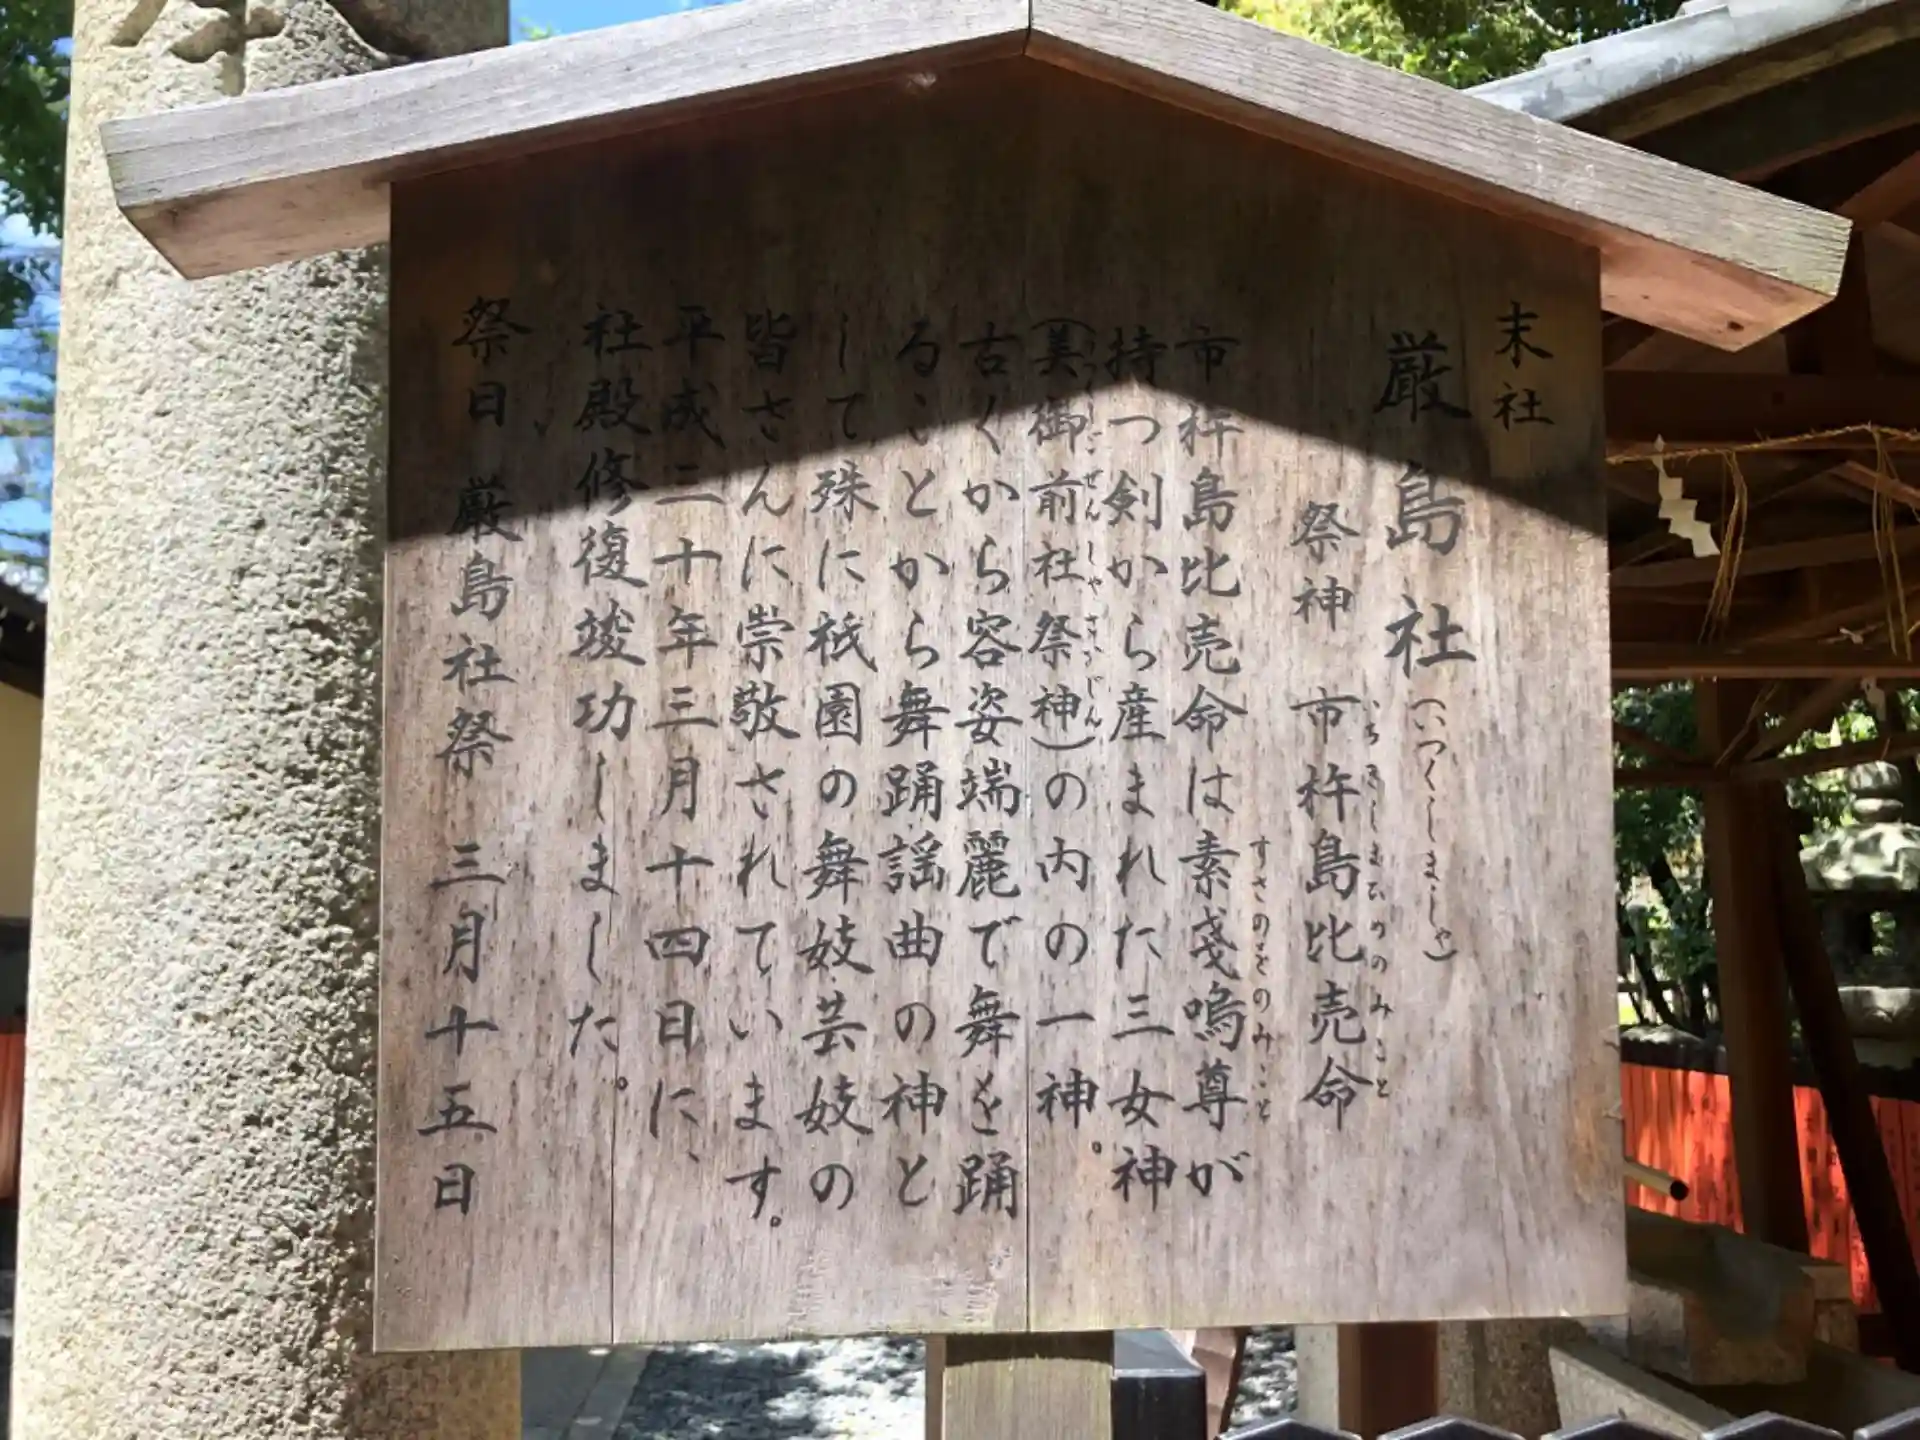 末社
厳島社(いつくしましゃ)
祭神 市杵島比売命
いちきしまひめのみこと
市杵島比売命は素戔嗚尊が
すさのをのみこと
持つ剣から産まれた三女神
(美御前社祭神)の内の一神。
うつくしごぜんしゃさいじん
古くから容姿端麗で舞を踊
ることから舞踊謡曲の神と
して殊に祇園の舞妓芸妓の
皆さんに崇敬されています。
平成二十年三月十四日に、
社殿修復竣功しました。
祭日 厳島社祭 三月十五日